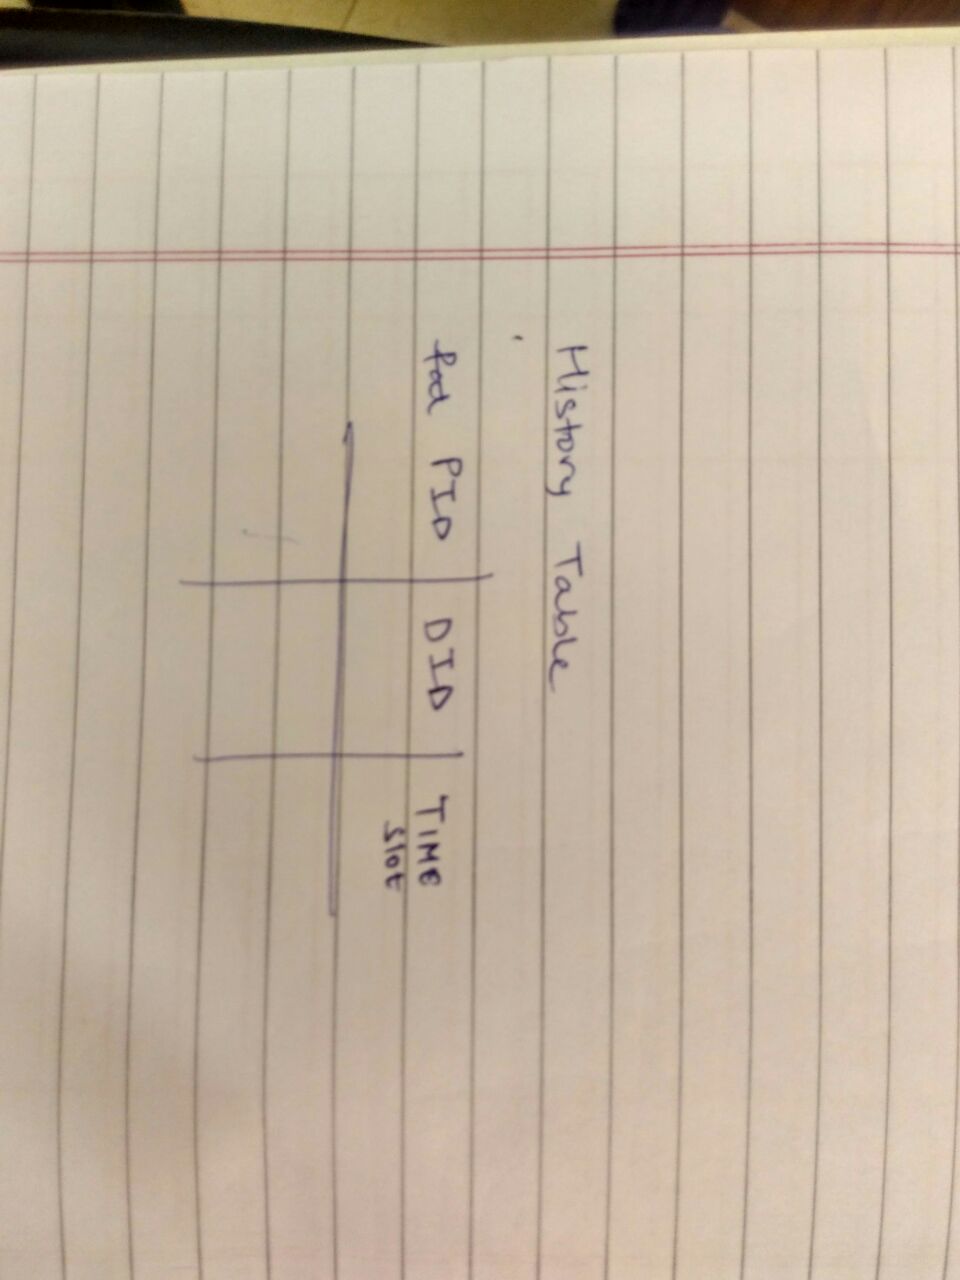 History Table
PID DID TIME
Slot